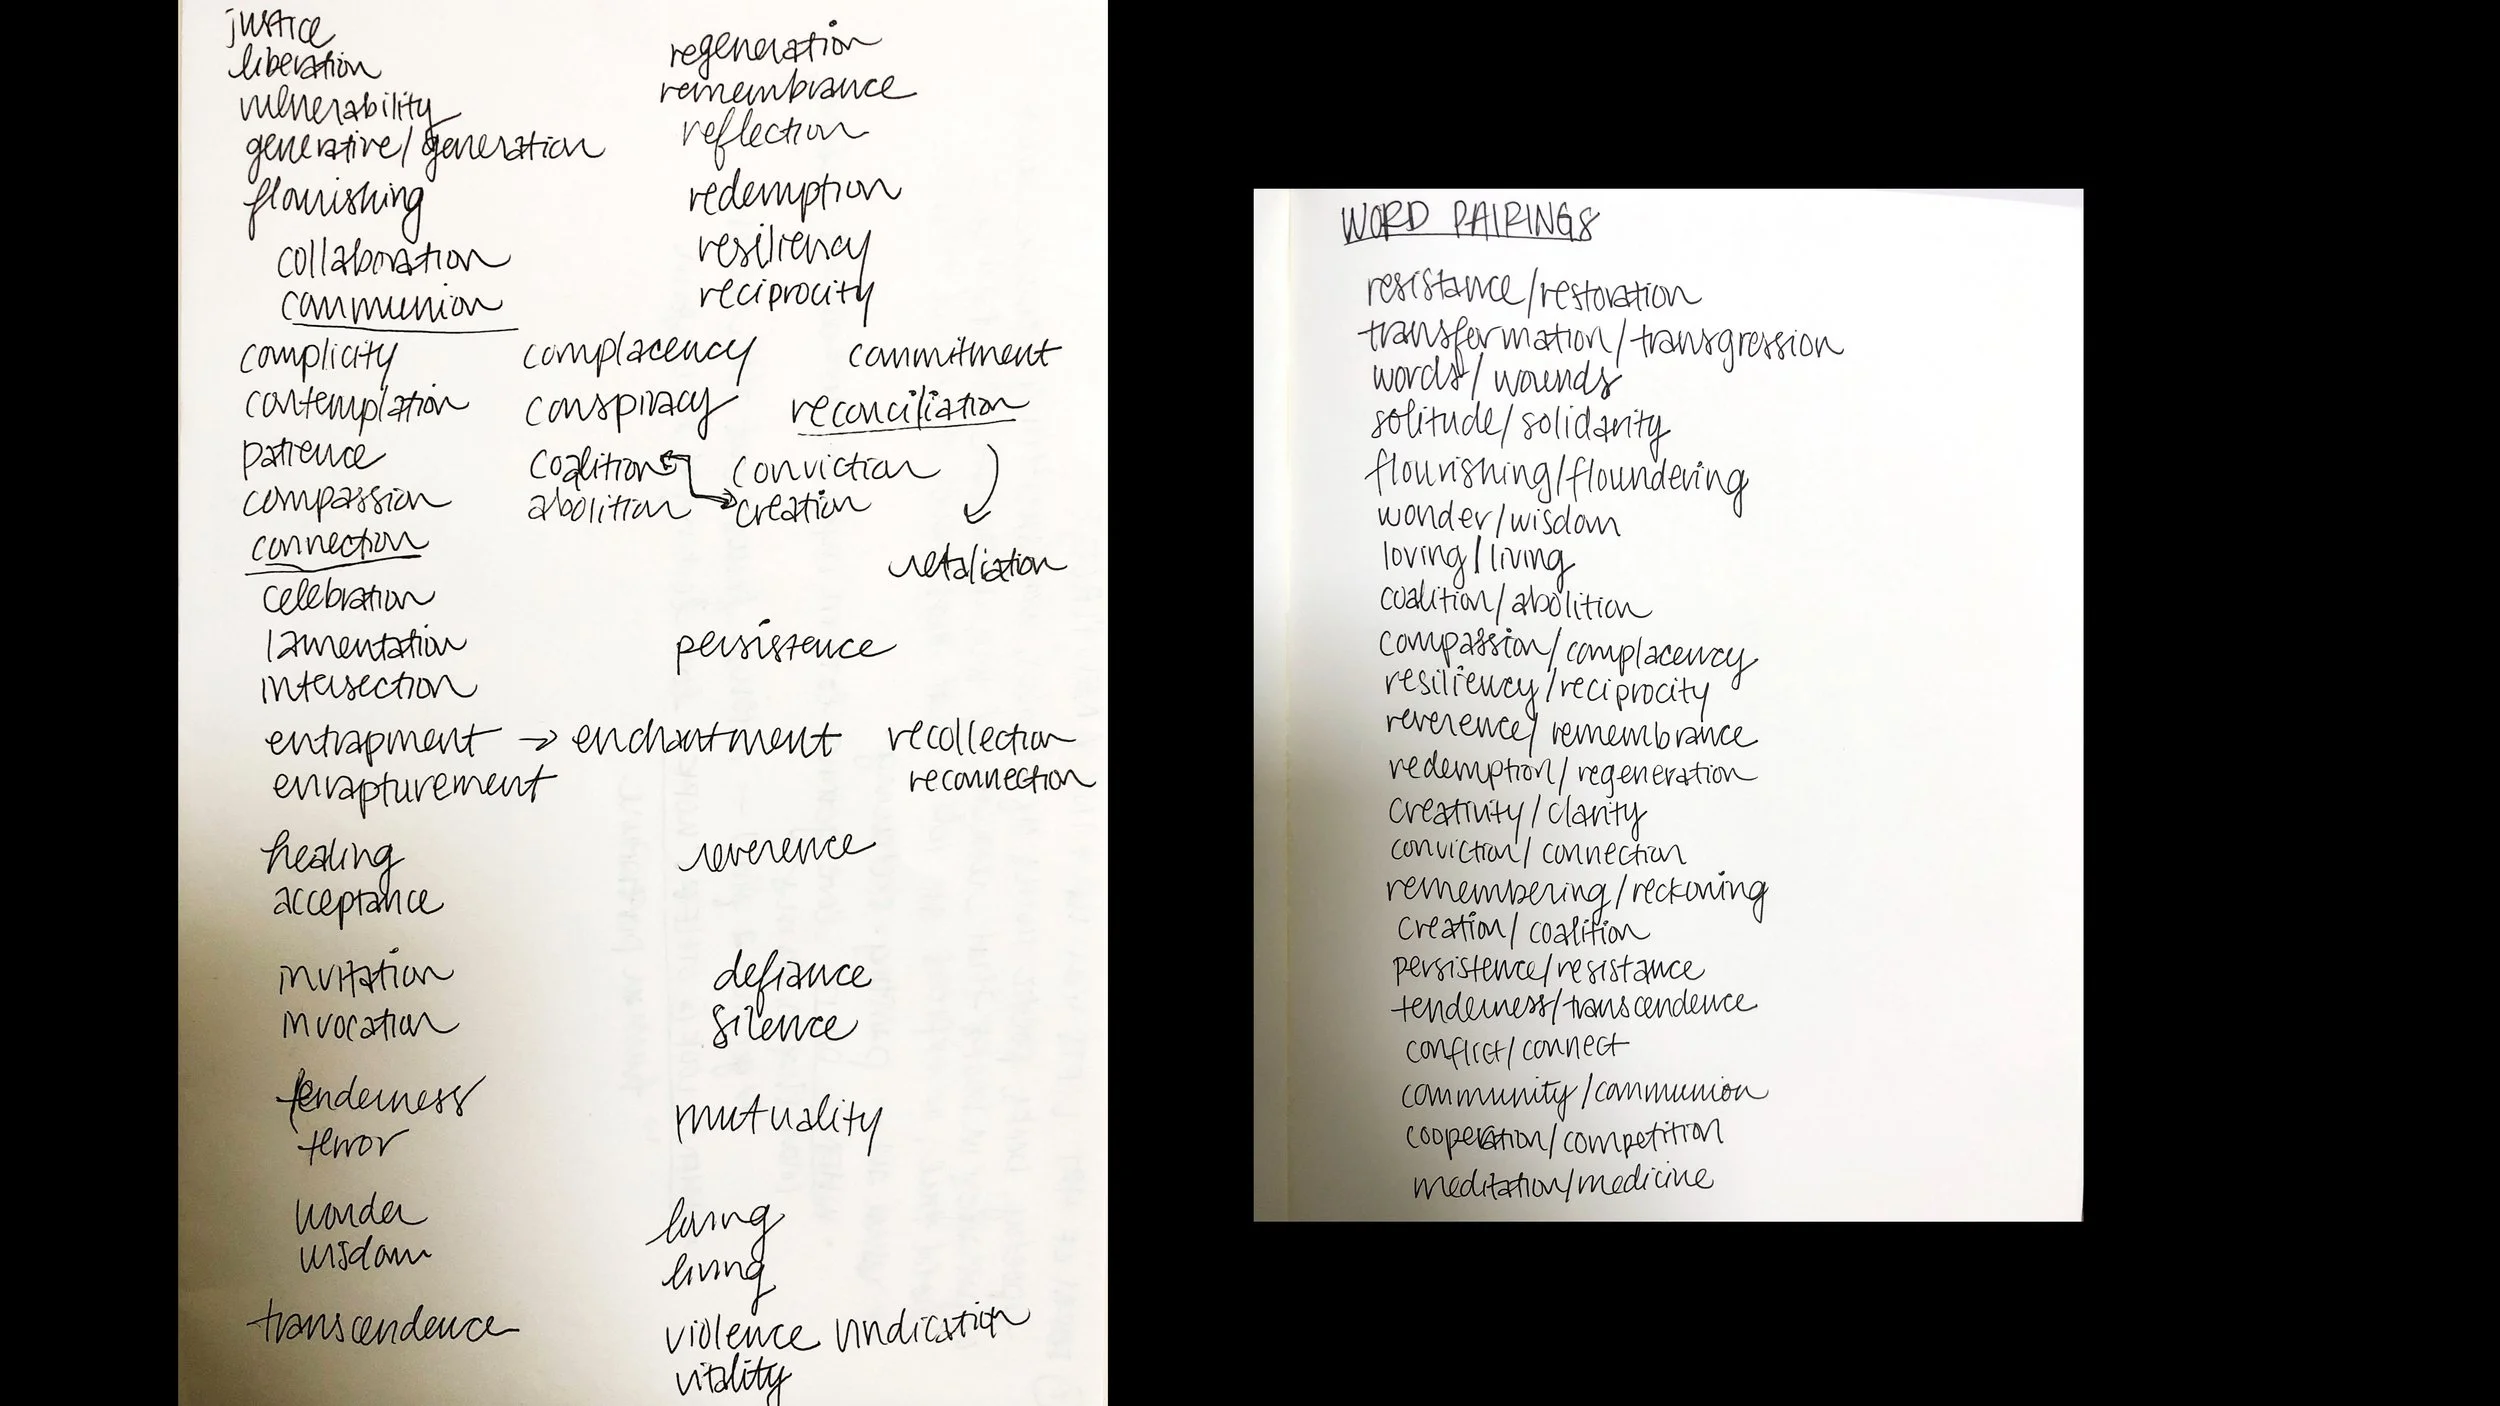 justice
liberation
vulnerability
generative/generation
flourishing
collaboration
communion
regeneration
remembrance
reflection
redemption
resiliency
reciprocity
complicity complacency commitment
contemplation conspiracy reconciliation
patience coalition conviction
compassion abolition creation
connection
retaliation
celebration
lamentation persistence
intersection
entrapment → enchantment recollection
enrapturement reconnection
healing reverence
acceptance
invitation defiance
invocation silence
tenderness mutuality
terror
wonder loving
wisdom living
transcendence violence vindication
vitality
WORD PAIRINGS
resistance/restoration
transformation/transgression
words/wounds
solitude/solidarity
flourishing/floundering
wonder/wisdom
loving/living
coalition/abolition
compassion/complacency
resiliency/reciprocity
reverence/remembrance
redemption/regeneration
creativity/clarity
conviction/connection
remembering/reckoning
creation/coalition
persistence/resistance
tenderness/transcendence
conflict/connect
community/communion
cooperation/competition
meditation/medicine